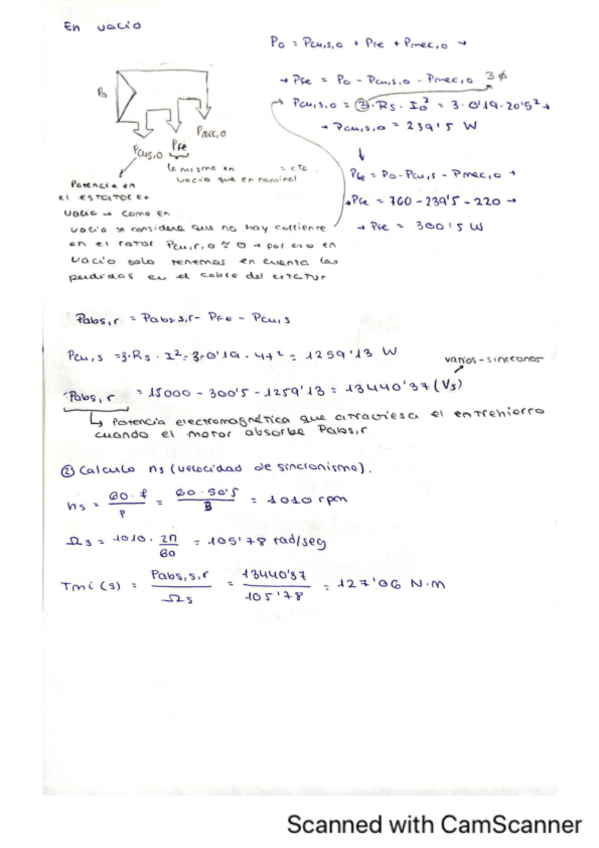 En vacío
P0 = Pcu,s,0 + PFe + Pmec,0 →
→ PFe = P0 - Pcu,s,0 - Pmec,0
3ϕ
Pcu,s,0 = 3·Rs·I0² = 3·0'19·20'5² →
→ Pcu,s,0 = 239'5 W
↓
PFe = P0 - Pcu,s - Pmec,0 →
→ PFe = 760 - 239'5 - 220 →
→ PFe = 300'5 W
P0
Pcu,s,0
PFe
Pmec,0
lo mismo en vacío que en nominal
= cte
Potencia en
el estator en
vacío → como en
vacío se considera que no hay corriente
en el rotor Pcu,r,0 ≈ 0 → por eso en
vacío solo tenemos en cuenta las
pérdidas en el cobre del estator
Pabs,r = Pabs,s,r - PFe - Pcu,s
Pcu,s = 3·Rs·I² = 3·0'19·47² = 1259'13 W
vatios-síncronos
Pabs,r = 15000 - 300'5 - 1259'13 = 13440'37 (Vs)
↳ Potencia electromagnética que atraviesa el entrehierro
cuando el motor absorbe Pabs,r
② Calculo ns (velocidad de sincronismo).
ns = 60·f / P = 60·50'5 / 3 = 1010 rpm
Ωs = 1010 · 2π / 60 = 105'78 rad/seg
Tmi (s) = Pabs,s,r / Ωs = 13440'37 / 105'78 = 127'06 N·m
Scanned with CamScanner